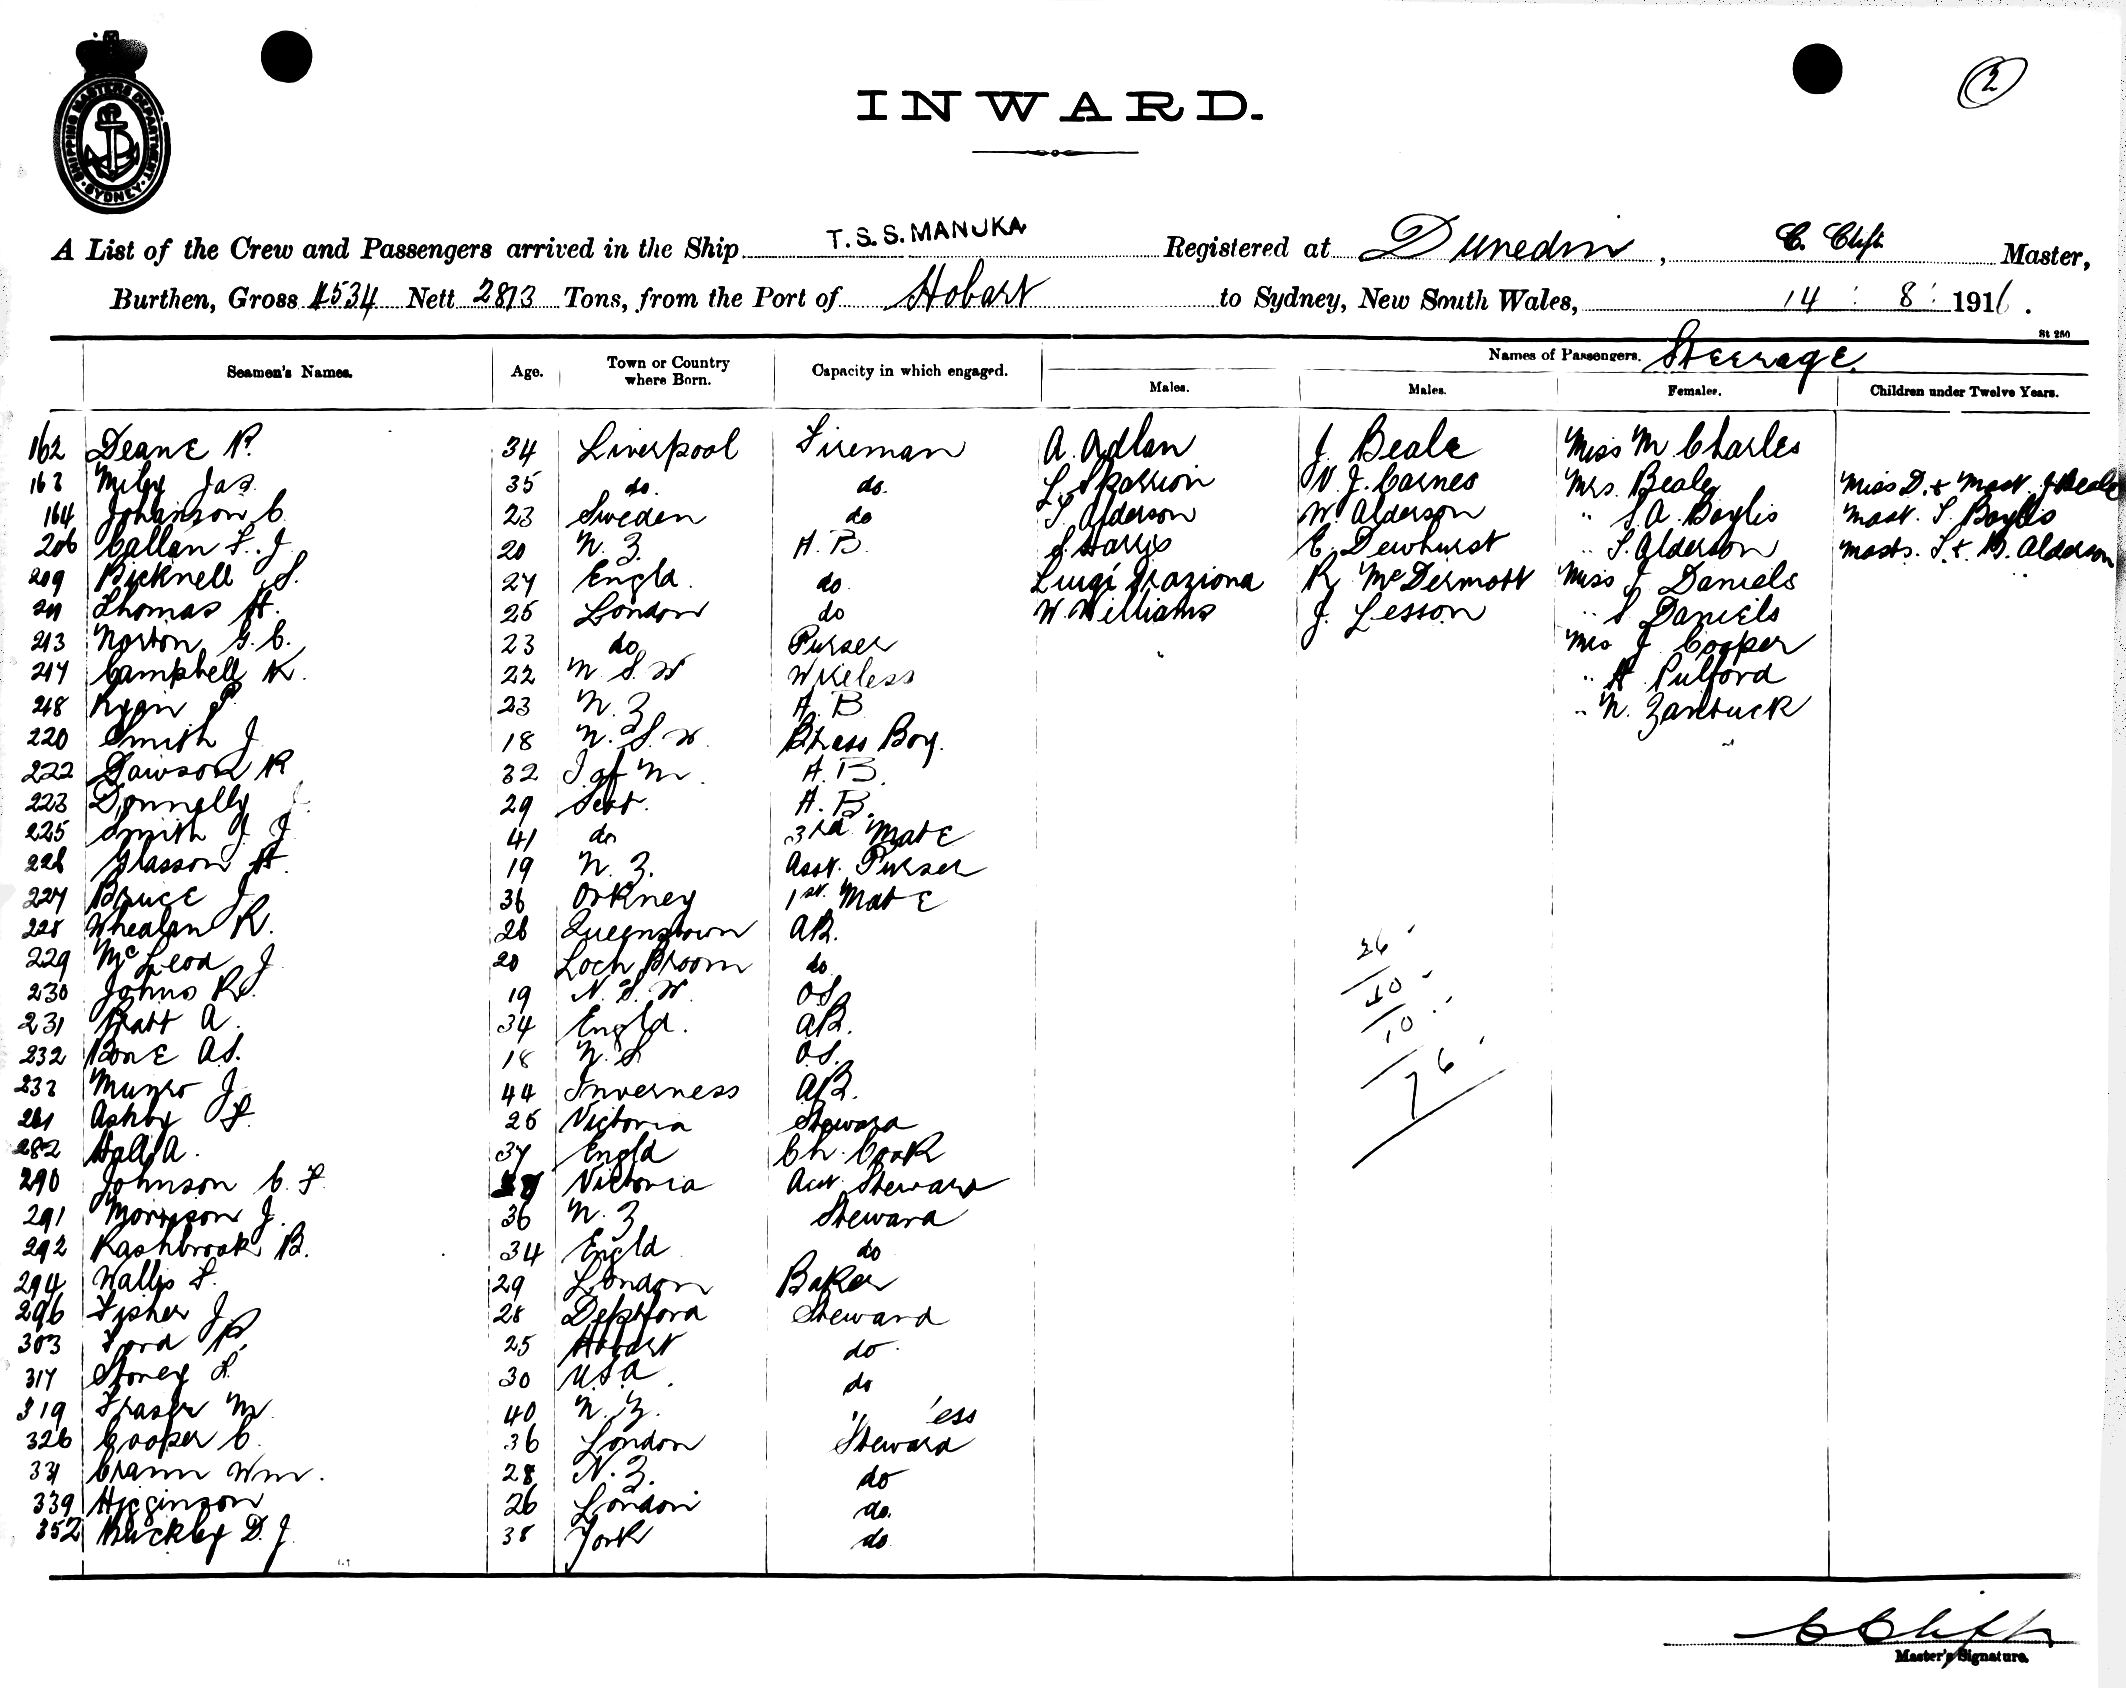 SHIPPING MASTERS DEPARTMENT SYDNEY
2
INWARD.
A List of the Crew and Passengers arrived in the Ship T.S.S. MANUKA Registered at Dunedin, C. Clift Master,
Burthen, Gross 4534 Nett 2813 Tons, from the Port of Hobart to Sydney, New South Wales, 14 : 8 : 1916.
St 250
Seamen's Names. Age. Town or Country where Born. Capacity in which engaged. Names of Passengers. Steerage
Males. Males. Females. Children under Twelve Years.
162 Deane R. 34 Liverpool Fireman A. Adlan J. Beale Miss M Charles
163 Miley Jas. 35 do. do. L. Skarrion W. J. Carnes Mrs. Beale Miss D. & Mast. J Beale
164 Johanson C. 23 Sweden do J Alderson W. Alderson " S A. Boylis Mast. S. Boylis
206 Callan F. J. 20 N. Z. A. B. S Harris E. Dewhurst " S. Alderson Masts. S. & B. Alderson
209 Bicknell S. 27 Engld. do. Luigi Graziona R. McDermott Miss J Daniels
211 Thomas H. 25 London do W. Williams J. Lesson " S Daniels
213 Norton G. C. 23 do Purser Mrs J Cooper
217 Campbell K. 22 N S W Wireless " A Pulford
218 Ryan P. 23 N. Z A. B " N. Zantuck
220 Smith J 18 N. S. W. Brass Boy.
222 Dawson R 32 I of M. A. B.
223 Donnelly J. 29 Scot. A. B.
225 Smith J. J 41 do 3rd Mate
226 Glasson H. 19 N. Z. Asst. Purser
227 Bruce J. 36 Orkney 1st. Mate
228 Whealan R. 26 Queenstown AB.
229 McLeod J 20 Loch Broom do
230 Johns R. 19 N. S. W. OS.
231 Pratt A. 34 Engld. AB.
232 Bone A.S. 18 N. S OS.
233 Munro J 44 Inverness AB.
261 Ashby F. 26 Victoria Steward
282 Hall A. 37 Engld Ch. Cook
290 Johnson C. F. Victoria Act. Steward
291 Morrison J. 36 N. Z Steward
292 Rashbrook B. 34 Engld do
294 Wallis F. 29 London Baker
296 Fisher J 28 Deptford Steward
303 Ford P. 25 Hobart do
317 Stoney L 30 U.S.A. do
319 Fraser M 40 N. Z. " 'ess
326 Cooper C. 36 London Steward
331 Crann Wm. 28 N. Z. do
339 Higginson 26 London do.
352 Buckley D. J. 38 York do
36
40
10
76
C Clift
Master's Signature.